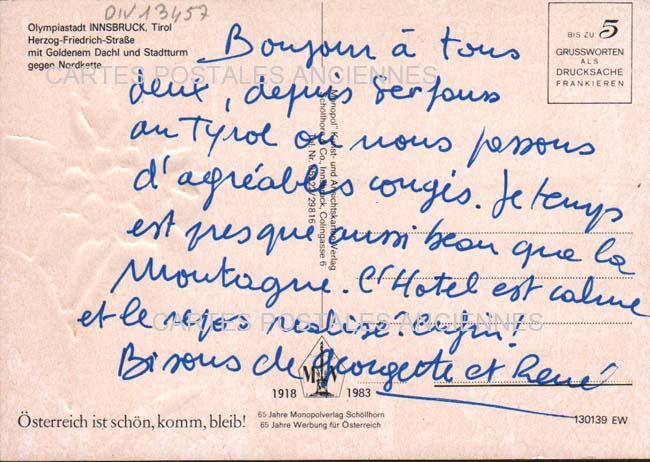 DIV13457
Olympiastadt INNSBRUCK, Tirol
Herzog-Friedrich-Straße
mit Goldenem Dachl und Stadtturm
gegen Nordkette
BIS ZU 5
GRUSSWORTEN
ALS
DRUCKSACHE
FRANKIEREN
CARTES POSTALES ANCIENNES
Bonjour à tous
deux, depuis Serfaus
au Tyrol où nous passons
d'agréables congés. Le temps
est presque aussi beau que la
Montagne. L'Hotel est calme
et le repos réalisé! Enfin!
Bisous de Georgette et René
CARTES POSTALES ANCIENNES
"Monopol" Kunst- und Ansichtskarten-Verlag
Schöllhorn & Co, Innsbruck, Colingasse 6
1918 1983
65 Jahre Monopolverlag Schöllhorn
65 Jahre Werbung für Österreich
Österreich ist schön, komm, bleib!
130139 EW